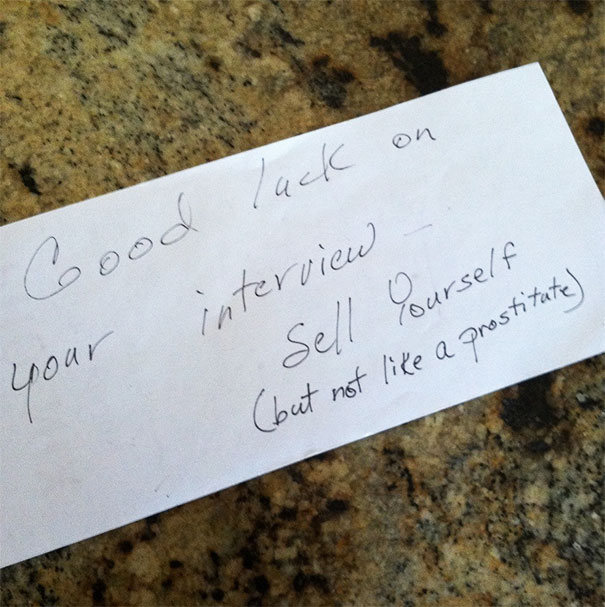 Good luck on
your interview –
Sell Yourself
(but not like a prostitute)